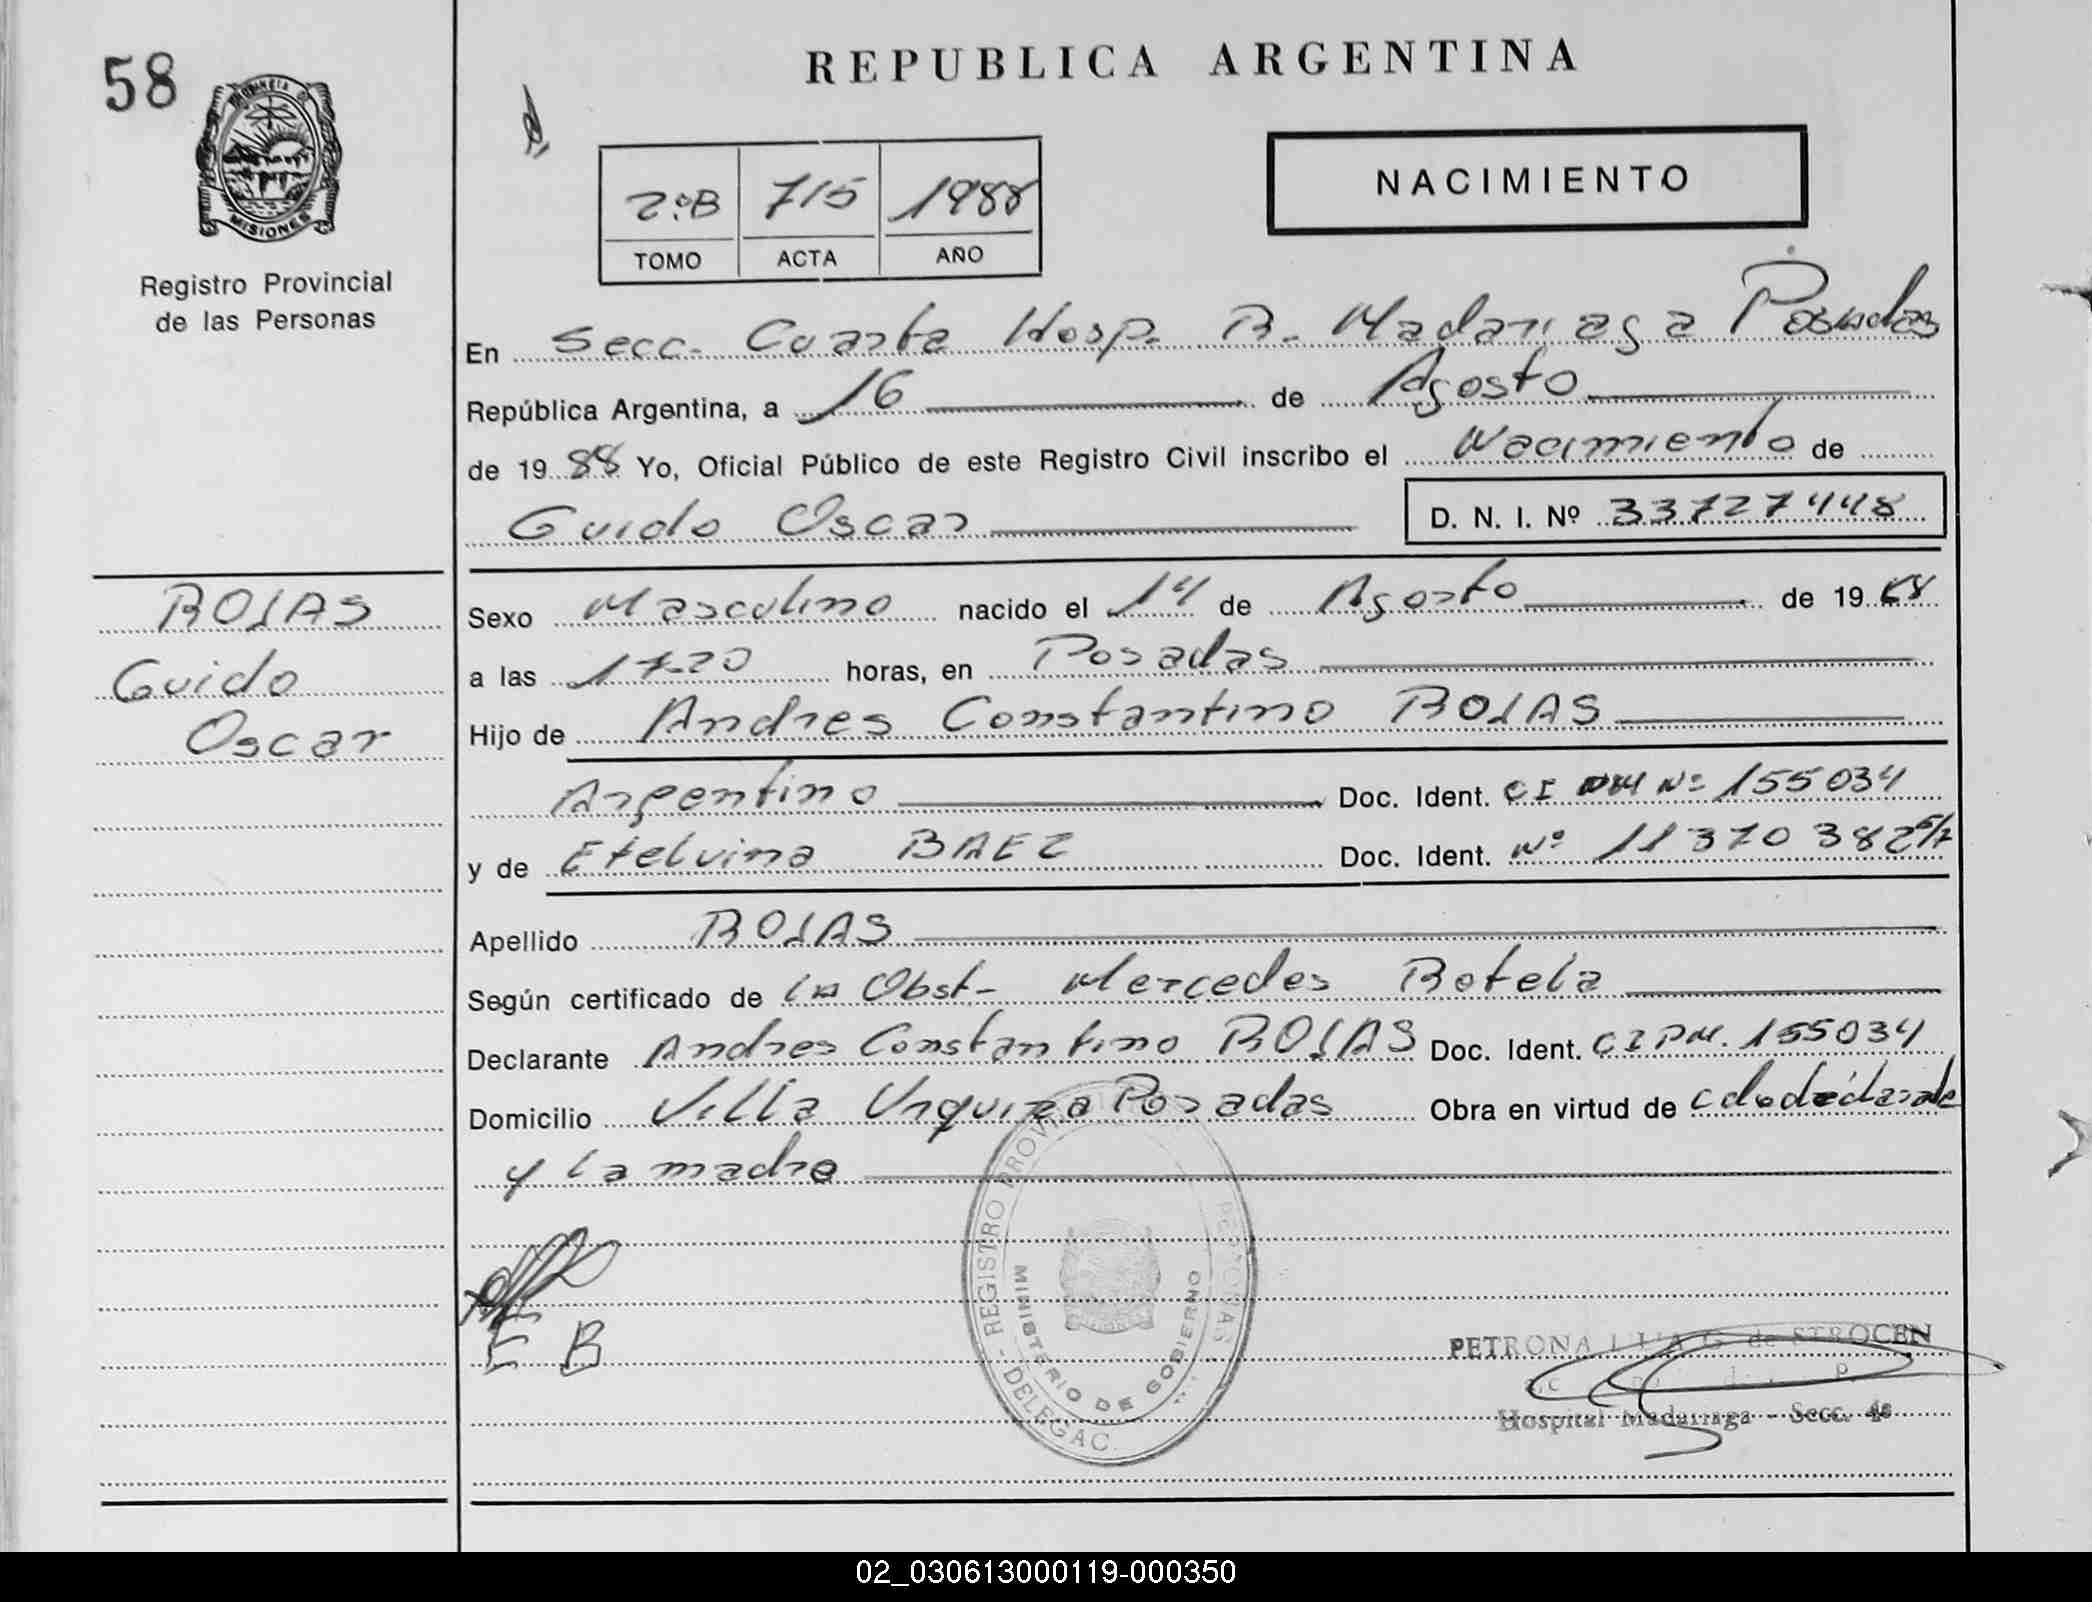 58
REPUBLICA ARGENTINA
PROVINCIA D MISIONES
Registro Provincial
de las Personas
2ºB 715 1988
TOMO ACTA AÑO
NACIMIENTO
En Secc. Cuarta Hosp. R. Madariaga Posadas
República Argentina, a 16 de Agosto
de 1988 Yo, Oficial Público de este Registro Civil inscribo el Nacimiento de
Guido Oscar D. N. I. Nº 33727448
ROJAS
Guido
Oscar
Sexo Masculino nacido el 14 de Agosto de 1988
a las 17.20 horas, en Posadas
Hijo de Andres Constantino ROJAS
Argentino Doc. Ident. CI PM Nº 155034
y de Etelvina BAEZ Doc. Ident. Nº 11370382
Apellido ROJAS
Según certificado de la Obst- Mercedes
Declarante Andres Constantino ROJAS Doc. Ident. CI PM. 155034
Domicilio Villa Urquiza Posadas Obra en virtud de
y la madre
E B
REGISTRO PROVI PERSONAS - DELEGAC.
MINISTERIO DE GOBIERNO
PETRONA de STROCEN
Hospital Madariaga - Secc. 4a
02_030613000119-000350